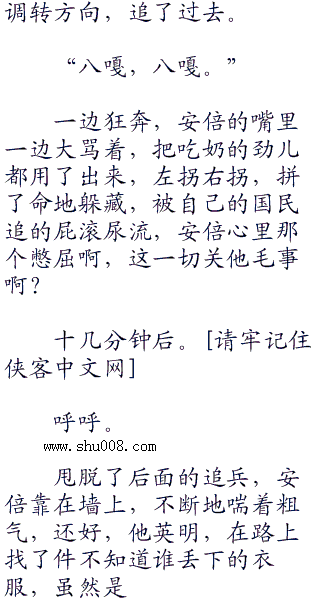 调转方向，追了过去。
“八嘎，八嘎。”
一边狂奔，安倍的嘴里
一边大骂着，把吃奶的劲儿
都用了出来，左拐右拐，拼
了命地躲藏，被自己的国民
追的屁滚尿流，安倍心里那
个憋屈啊，这一切关他毛事
啊？
十几分钟后。[请牢记住
侠客中文网]
呼呼。
www.shu008.com
甩脱了后面的追兵，安
倍靠在墙上，不断地喘着粗
气，还好，他英明，在路上
找了件不知道谁丢下的衣
服，虽然是